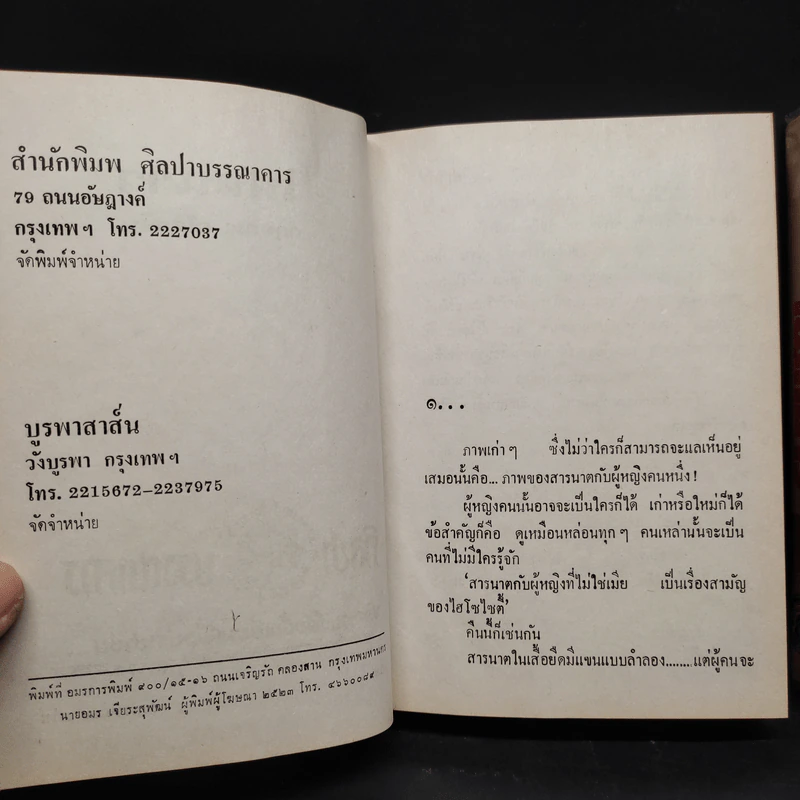 สำนักพิมพ ศิลปาบรรณาคาร
79 ถนนอัษฎางค์
กรุงเทพฯ โทร. 2227037
จัดพิมพ์จำหน่าย
บูรพาสาส์น
วังบูรพา กรุงเทพฯ
โทร. 2215672–2237975
จัดจำหน่าย
พิมพ์ที่ อมรการพิมพ์ ๙๐๐/๑๕-๑๖ ถนนเจริญรัถ คลองสาน กรุงเทพมหานคร
นายอมร เจียระสุพัฒน์ ผู้พิมพ์ผู้โฆษณา ๒๕๒๓ โทร. ๔๖๖๐๐๘๙
๑...
ภาพเก่าๆ ซึ่งไม่ว่าใครก็สามารถจะแลเห็นอยู่
เสมอนั้นคือ... ภาพของสารนาตกับผู้หญิงคนหนึ่ง!
ผู้หญิงคนนั้นอาจจะเป็นใครก็ได้ เก่าหรือใหม่ก็ได้
ข้อสำคัญก็คือ ดูเหมือนหล่อนทุกๆ คนเหล่านั้นจะเป็น
คนที่ไม่มีใครรู้จัก
‘สารนาตกับผู้หญิงที่ไม่ใช่เมีย เป็นเรื่องสามัญ
ของไฮโซไซตี้’
คืนนี้ก็เช่นกัน
สารนาตในเสื้อยืดมีแขนแบบลำลอง........แต่ผู้คนจะ